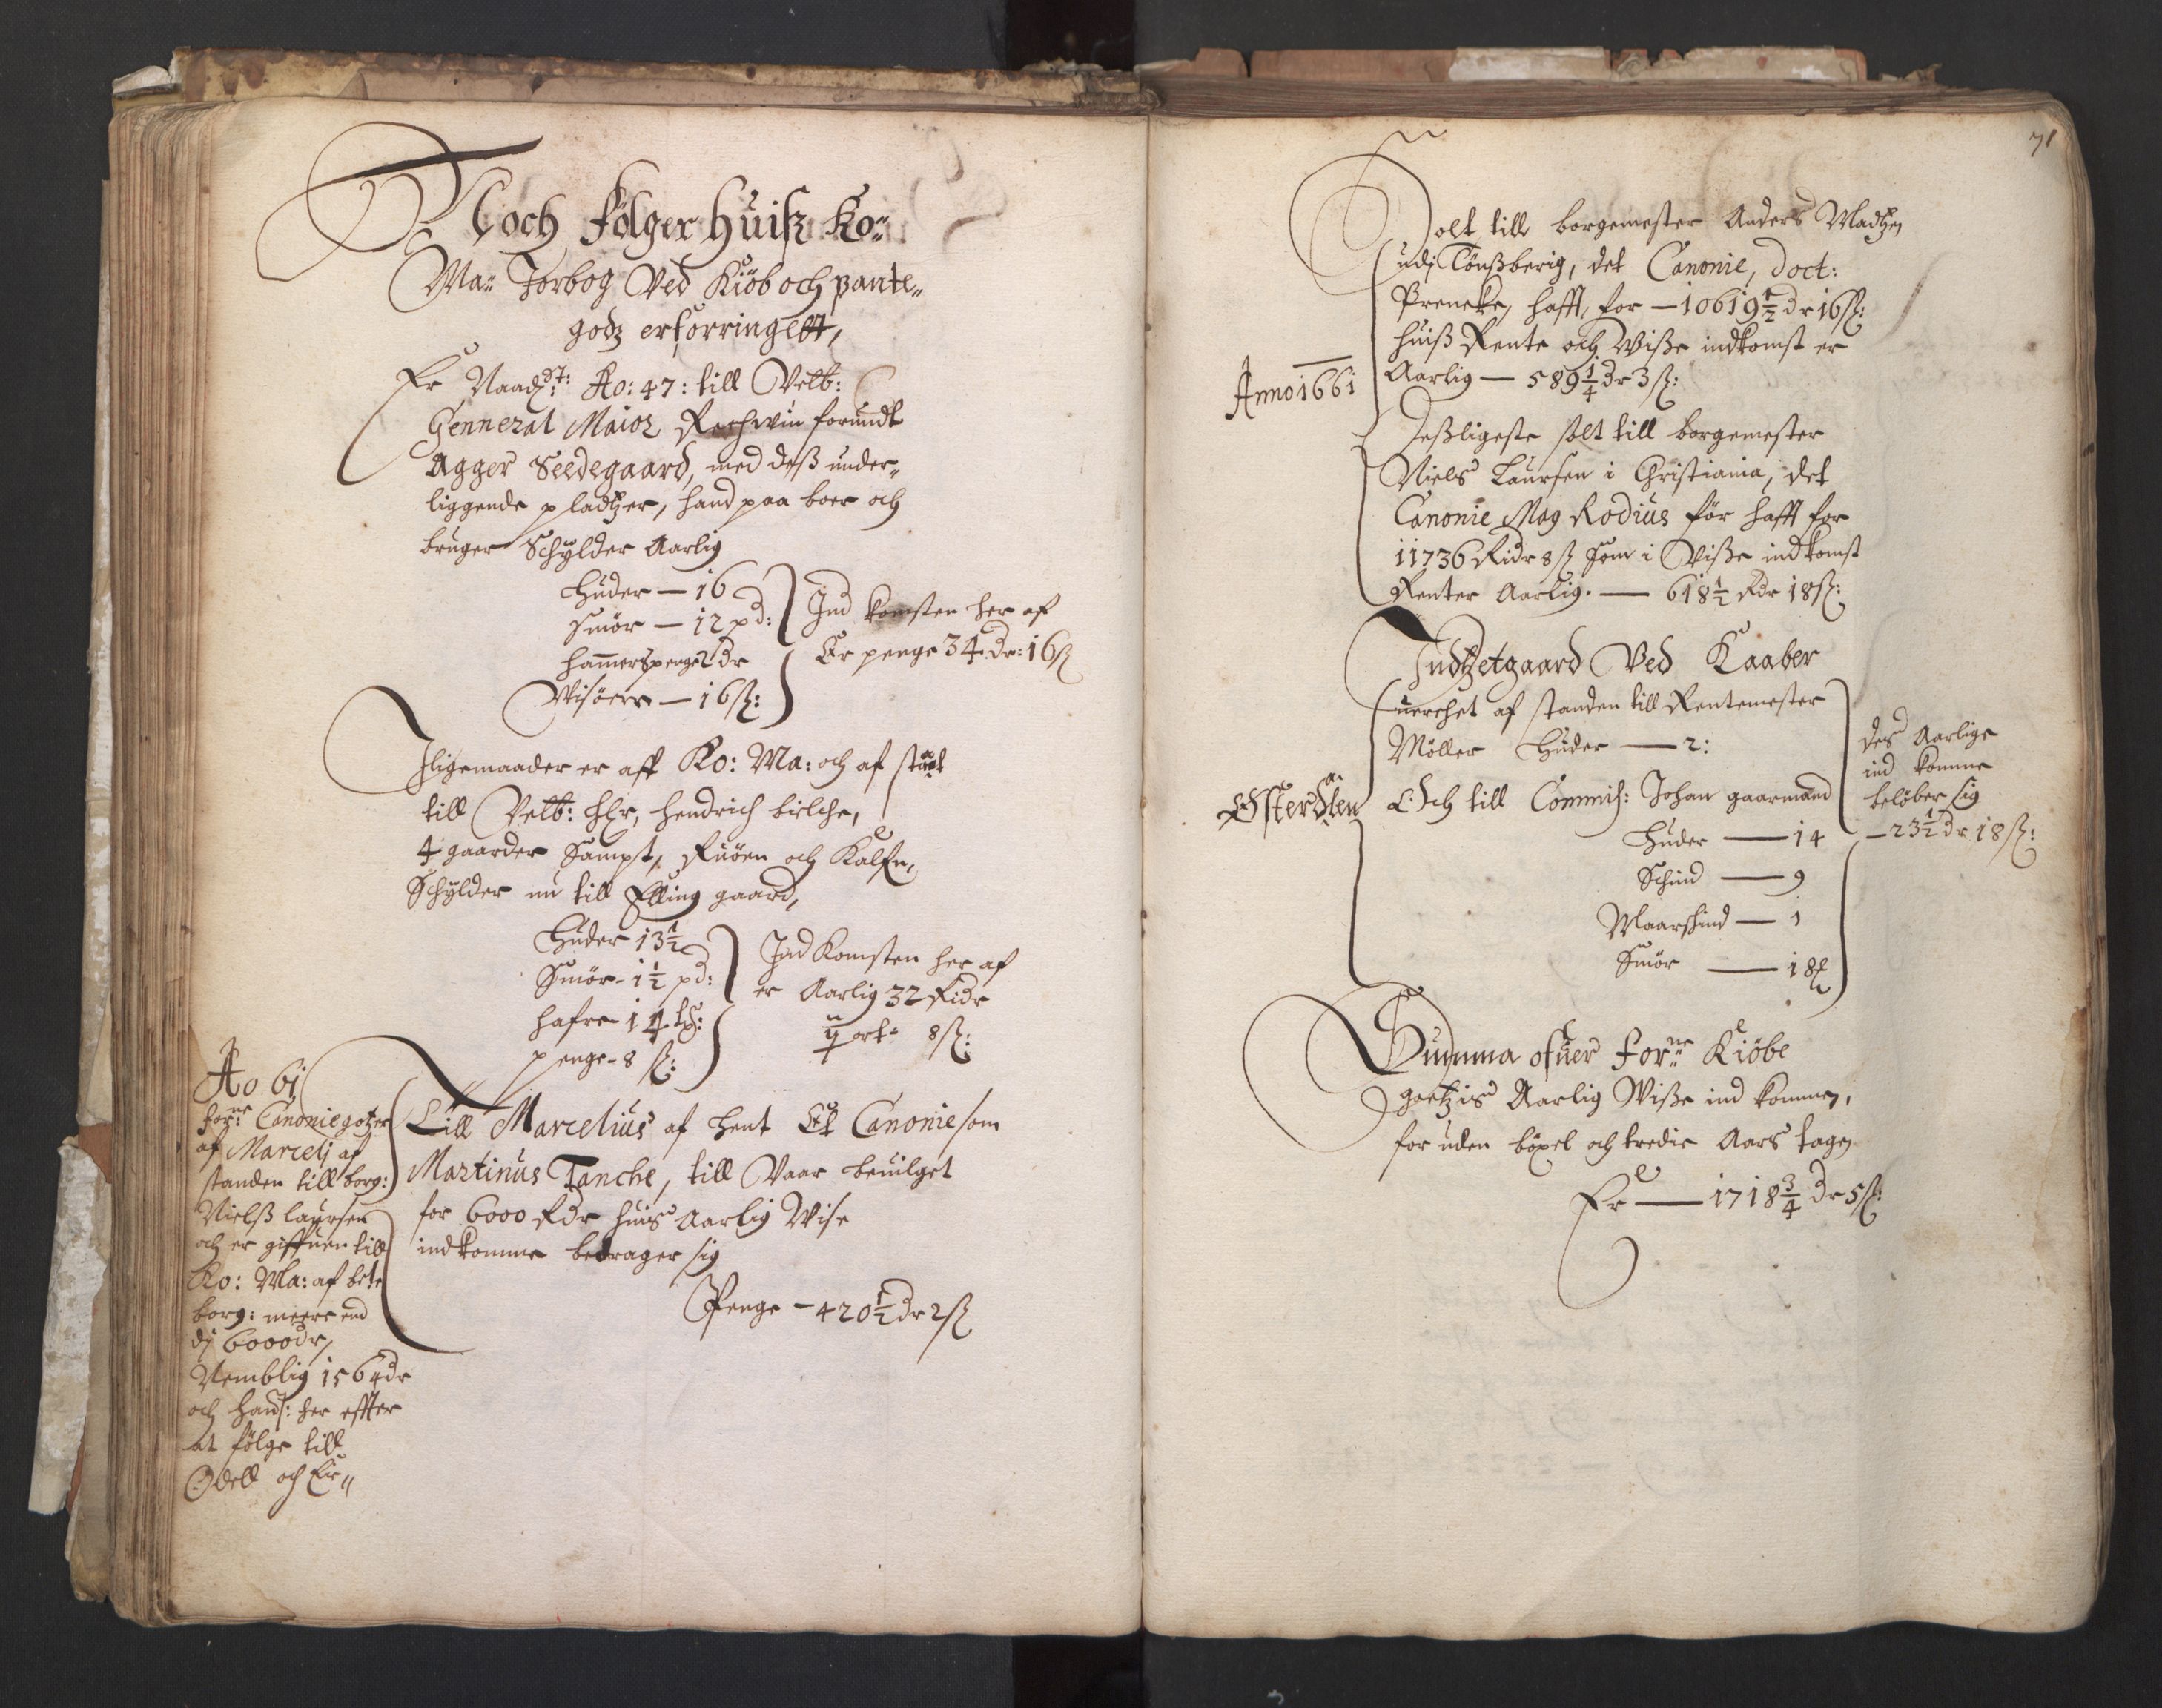 Noch følger huiß Ko"
Ma" Jorbog Ved Kiöb och pante"
godz er forringett,
Er Naad: Ao: 47: till Velb:
Genneral Maior Reichwin forundt
Agger Seedegaard, med deß under"
liggende pladtzer, hand paa boer och
bruger Schylder Aarlig
Huder — 16
Smör — 12 pd:
hammerspenge 2 dr
Wisöer — 16 ß:
Ind komsten her af
Er penge 34 dr: 16 ß
Iligemaader er aff Ko: Ma: och af staaet
till Velb: Hr, Hendrich bielche,
4 gaarder Sampt, Ruöen och Kalfn,
Schylder nu till Elling gaard,
Huder 13 1/2
Smör - 1 1/2 pd:
hafre 14 tß:
penge - 8 ß:
Ind Komsten her af
er Aarlig 32 Ridr
ij ort" 8 ß:
Ao 61
for:ne Canonie gotzer
af Marcelj af
standen till borg:
Nielß laursen
och er giffuen till
Ko: Ma: af bete
borg: meere end
dj 6000 dr,
Nemblig 1564 dr
och hanß: her effter
at følge till
Odell och Eie"
Till Marcelius af hent Et Canonie som
Martinus Tanche, till Vaar beuilget
for 6000 Rdr huis Aarlig Wise
indkomme bedrager sig
Penge — 420 1/2 dr 2 ß
71
Solt till borgemester Anders Madtzen
udj Tönßberig, det Canonie, Doct:
Preneke, hafft, for — 10619 1/2 dr 16 ß:
huiß Rente och Wiße indkomst er
Aarlig — 589 1/4 dr 3 ß:
Anno 1661
Deßligeste solt till borgemester
Niels Laursen i Christiania, det
Canonie Mag Rodius för hafft for
11736 Ridr 8 ß som i Viße indkomst
Renter Aarlig. — 618 1/2 Rdr 18 ß:
Indtzetgaard Ved Kaaber
uerchet af standen till Rentemester
Möller Huder — 2:
Österdalen
Och till Commiß: Johan gaarmand
Huder — 14
Schind — 9
Maarschind — 1
Smör — 18
des Aarlige
ind komme
beløber sig
— 23 1/2 dr 18 ß:
Summa ofuer for:ne Kiöbe
goetzis Aarlig Wiße ind kommen,
for uden böxel och tredie Aars tage
Er — 1718 3/4 dr 5 ß: